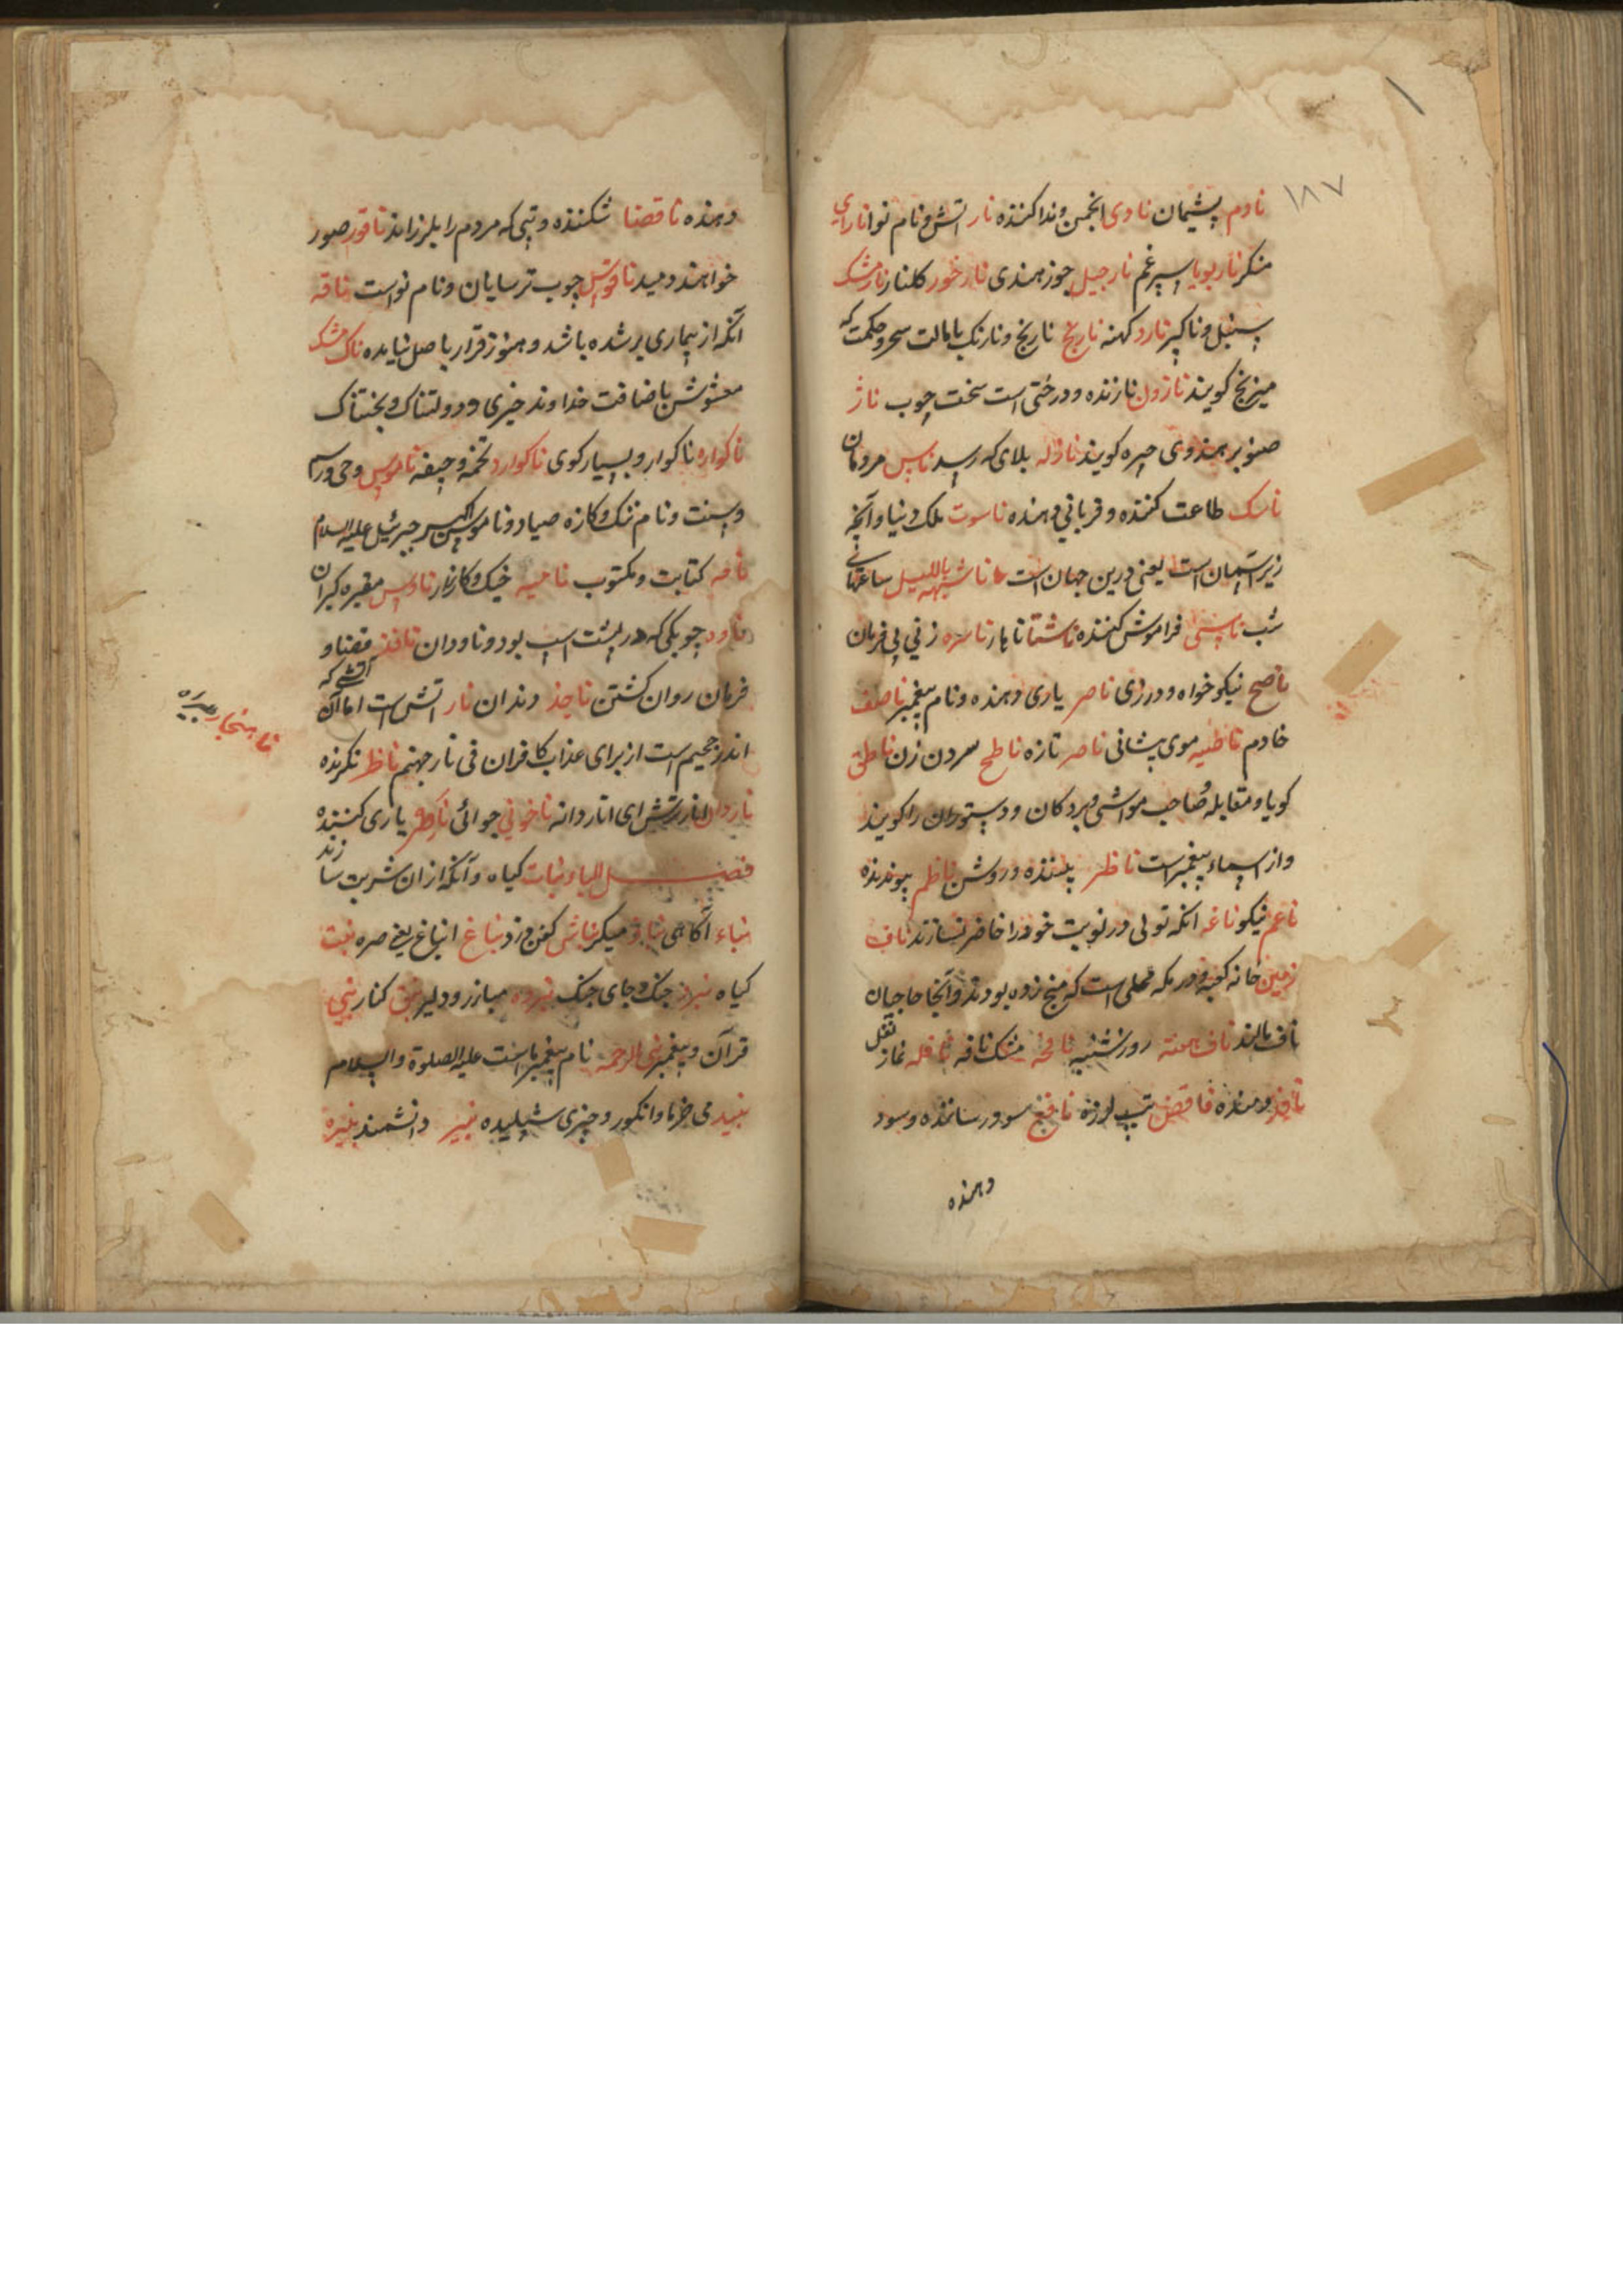 ۱۸۷
نادم پشیمان نادی انجمن و ندا کننده نار اتش و نام نوا نارای
منکر نار بویا اسپرغم نارجیل جوز هندی نار خور کلنار نارمشک
سنبل و ناکیر نارد کهنه نارنج نارنج و نارنک با مالت سحر و حکمت که
نیرنج کویند نازون نازنده و درختی است سخت چوب ناژ
صنوبر بهندوی چیره کویند نازله بلای که رسد ناس مردمان
ناسک طاعت کننده و قربانی دهنده ناسوت ملک دنیا و آنچه
زیر آسمان است یعنی درین جهان است ناشیه اللیل ساعتهائی
شب ناسی فراموش کننده ناشتا ناهار ناسره زنی بی فرمان
ناصح نیکو خواه و درزی ناصر یاری دهنده و نام پیغمبر ناصف
خادم ناصیه موی پیشانی ناصر تازه ناطح سردن زن ناطق
کویا و متقابله صاحب مواشی و بردکان و دستوران را کویند
و از اسماء پیغمبر است ناظر بیننده و روشن ناظم پیوندنده
ناعم نیکو ناغه انکه تولی در نوبت خود را حاضر نسازند ناف
زمین خانه کعبه و در مکه محلی است که میخ زده بودند و آنجا حاجیان
ناف مالند ناف هفته روز شنبه نافحه مشک نافه نافله نماز نفل
نافذ رونده ناقض تب لرزه نافع سود رساننده و سود
دهنده
دهنده ناقضا شکننده و تپی که مردم را بلرزاند ناقور صور
خواهند دمید ناقوس چوب ترسایان و نام نواست ناقه
آنکه از بیماری بر شده باشد و هنوز قرار باصل نیامده ناک مشک
مغشوش باضافت خداوند چیزی و دولتناک و بختناک
ناکواره ناکوار و بسیار کوی ناکوارد تخمه و جیفه ناموس وحی و راسم
و سنت و نام ننک و کازه صیاد و ناموس اکبر جبرئیل علیه السلام
نامه کتابت و مکتوب ناحیه خیک و کازار ناوس مقبره کبران
ناوه چوبکی که در پشت اسب بود و ناودان نافذ قضا و
فرمان روان کشتن ناجذ دندان نار اتش است اما آن آتشی که
اندر جحیم است از برای عذاب کافران فی نار جهنم ناظر نکرنده
ناهنجار بیراه
ناردان انار ترش ای اناردانه ناخونی جوائی ناصر یاری کننده
فصل الباء نبات کیاه و آنکه ازان شربت سازند
نباء آکاهی نباذ میکر نباش کفن دزد نباغ انباغ یعنی ضره نبت
کیاه نبرد جنک و جای جنک نبرده مبارز و دلیر نبق کنار نبی
قرآن و پیغمبر نبی الرحمه نام پیغمبر ماست علیه الصلوة والسلام
نبید می خرما و انکور و چیزی شپلیده نبیر دانشمند نبیره